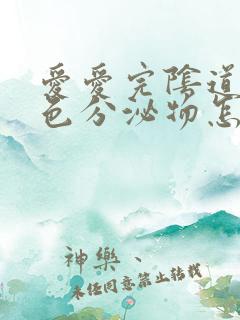 愛愛完陰道
色分泌物怎
神樂、
未經同意禁止轉載